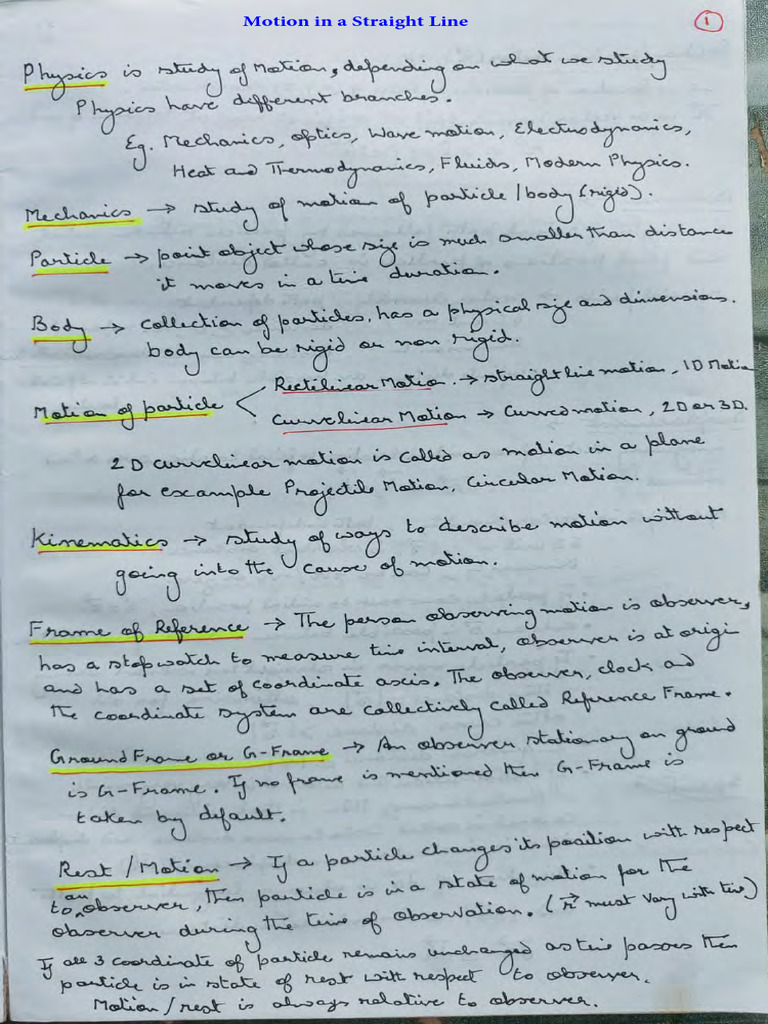 Motion in a Straight Line
1
Physics is study of Motion, depending on what we study
Physics have different branches.
Eg. Mechanics, optics, Wave motion, Electrodynamics,
Heat and Thermodynamics, Fluids, Modern Physics.
Mechanics → study of motion of particle / body (rigid).
Particle → point object whose size is much smaller than distance
it moves in a time duration.
Body → collection of particles, has a physical size and dimensions.
body can be rigid or non rigid.
Motion of particle < Rectilinear Motion. → straight line motion, 1D Motion
Curvelinear Motion → Curved motion, 2D or 3D.
2D curvelinear motion is called as motion in a plane
for example Projectile Motion, Circular Motion.
Kinematics → study of ways to describe motion without
going into the cause of motion.
Frame of Reference → The person observing motion is observer,
has a stopwatch to measure time interval, observer is at origi
and has a set of coordinate axis. The observer, clock and
the coordinate system are collectively called Reference Frame.
Ground Frame or G-Frame → An observer stationary on ground
is G-Frame. If no frame is mentioned then G-Frame is
taken by default.
Rest / Motion → If a particle changes its position with respect
to an observer, then particle is in a state of motion for the
observer during the time of observation. (r⃗ must vary with time)
If all 3 coordinate of particle remains unchanged as time passes then
particle is in state of rest with respect to observer.
Motion / rest is always relative to observer.